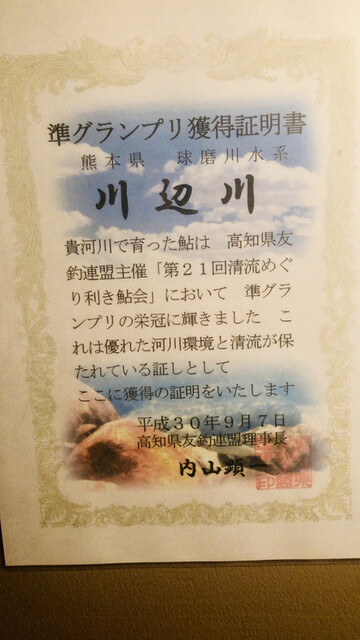 準グランプリ獲得証明書
熊本県　球磨川水系
川辺川
貴河川で育った鮎は　高知県友
釣連盟主催「第２１回清流めぐ
り利き鮎会」において　準グラ
ンプリの栄冠に輝きました　こ
れは優れた河川環境と清流が保
たれている証しとして
ここに獲得の証明をいたします
平成３０年９月７日
高知県友釣連盟理事長
内山顕一